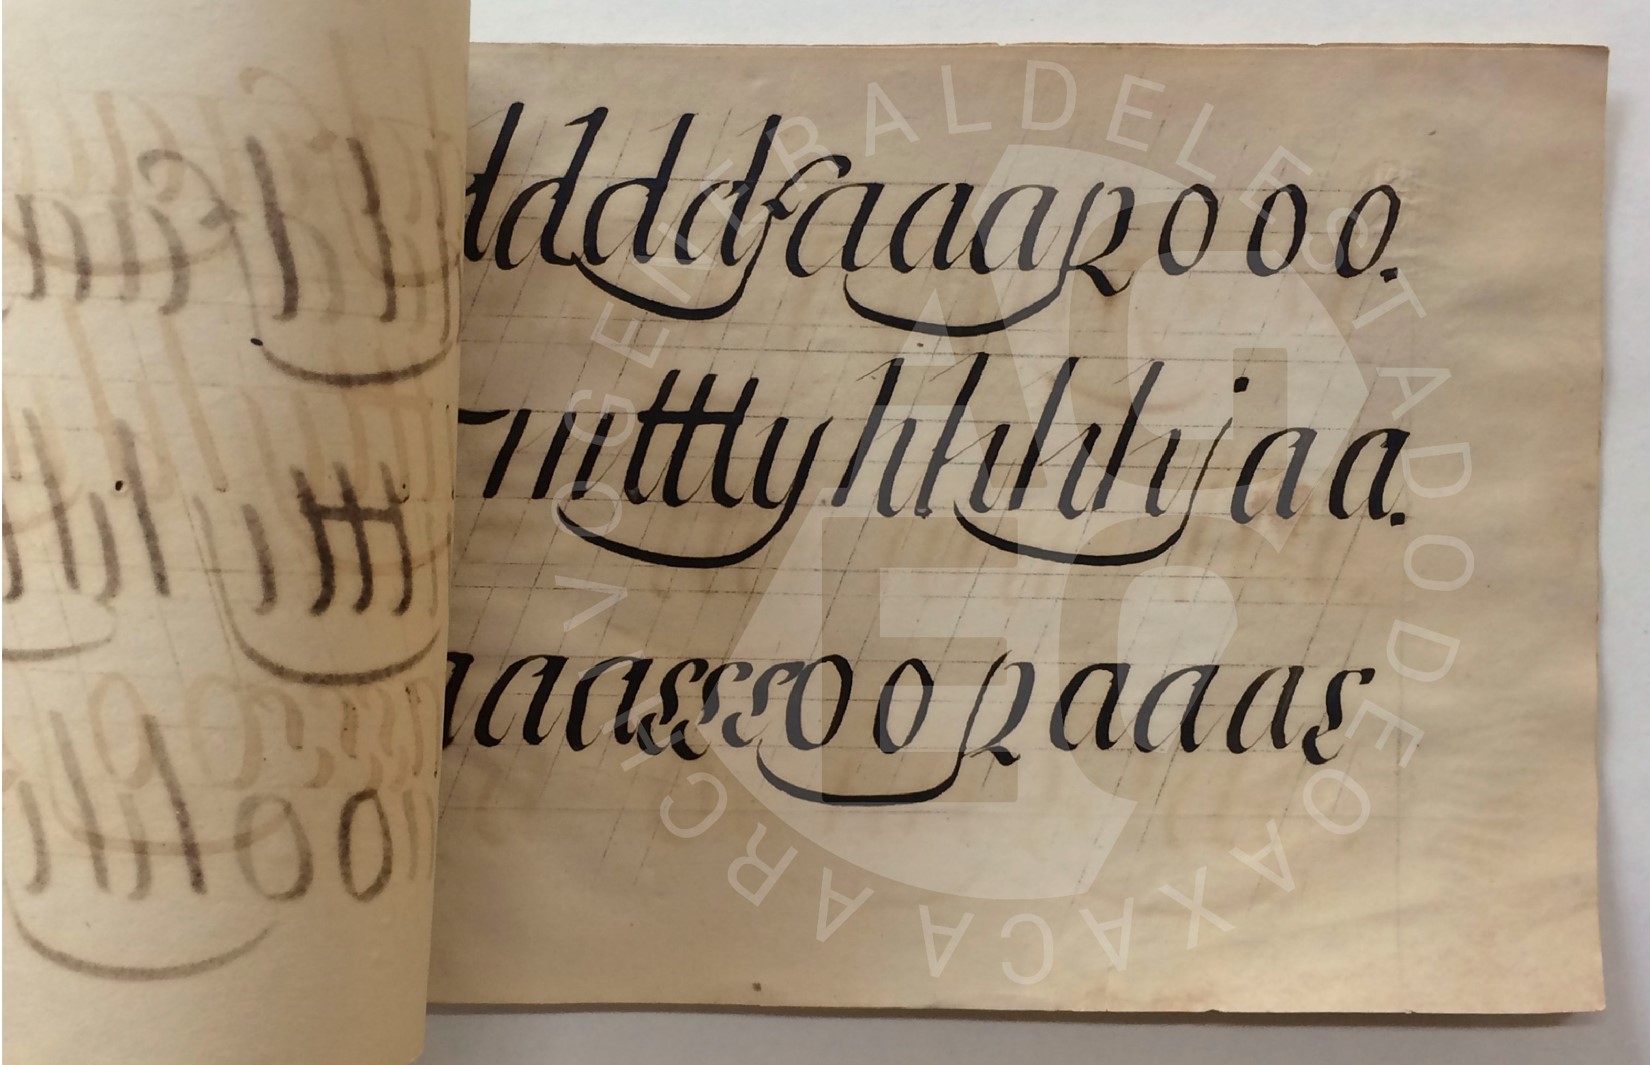 ddddfaaaRooo.
iiitttyhhhhjaa.
aaasssooRaaas
ARCHIVO GENERAL DEL ESTADO DE OAXACA